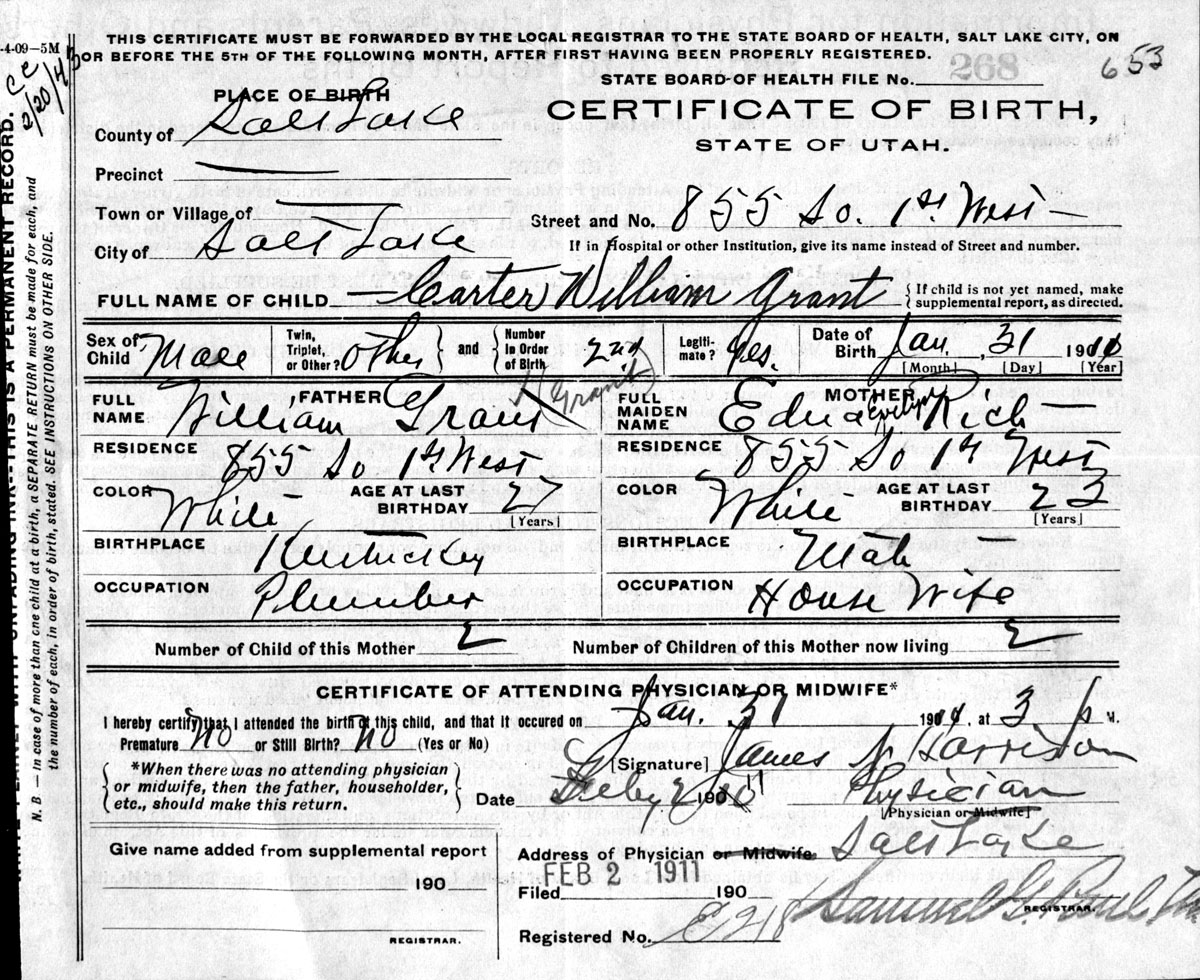 -4-09-5M
THIS CERTIFICATE MUST BE FORWARDED BY THE LOCAL REGISTRAR TO THE STATE BOARD OF HEALTH, SALT LAKE CITY, ON
OR BEFORE THE 5TH OF THE FOLLOWING MONTH, AFTER FIRST HAVING BEEN PROPERLY REGISTERED.
653
268
cc 2/20/43
STATE BOARD OF HEALTH FILE No.
PLACE OF BIRTH
CERTIFICATE OF BIRTH,
STATE OF UTAH.
County of Salt Lake
Precinct —
Town or Village of —
Street and No. 855 So. 1st West —
City of Salt Lake
If in Hospital or other Institution, give its name instead of Street and number.
FULL NAME OF CHILD — Carter William Grant { If child is not yet named, make supplemental report, as directed.
Sex of Child Male Twin, Triplet, or Other? Other } and { Number in Order of Birth 2nd Legitimate? Yes. Date of Birth Jan. 31 19
[Month] [Day] [Year]
FATHER
MOTHER
FULL NAME William Grant (Grant)
FULL MAIDEN NAME Edna Evelyn Rich —
RESIDENCE 855 So 1st West
RESIDENCE 855 So 1st West
COLOR White AGE AT LAST BIRTHDAY 27 [Years]
COLOR White AGE AT LAST BIRTHDAY 23 [Years]
BIRTHPLACE Kentuckey
BIRTHPLACE Utah
OCCUPATION Plumber
OCCUPATION House Wife
Number of Child of this Mother 2
Number of Children of this Mother now living 2
CERTIFICATE OF ATTENDING PHYSICIAN OR MIDWIFE*
I hereby certify that I attended the birth of this child, and that it occured on Jan. 31 19 at 3 P M.
Premature No or Still Birth? No (Yes or No)
[Signature] James N Harrison
{ *When there was no attending physician or midwife, then the father, householder, etc., should make this return. }
Date Feby 2 190
Physician
[Physician or Midwife]
Give name added from supplemental report
190
REGISTRAR.
Address of Physician or Midwife Salt Lake
Filed FEB 2 1911 190
Samuel G. Paul
REGISTRAR.
Registered No. E218
PERMANENT RECORD.
WITH UNFADING INK--THIS IS A
N. B. — In case of more than one child at a birth, a SEPARATE RETURN must be made for each, and
the number of each, in order of birth, stated. SEE INSTRUCTIONS ON OTHER SIDE.